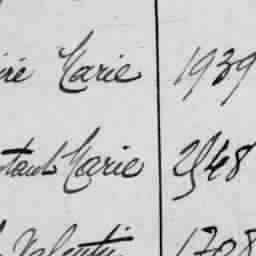 Marie 1939
Marie 2548
Valentin 1708